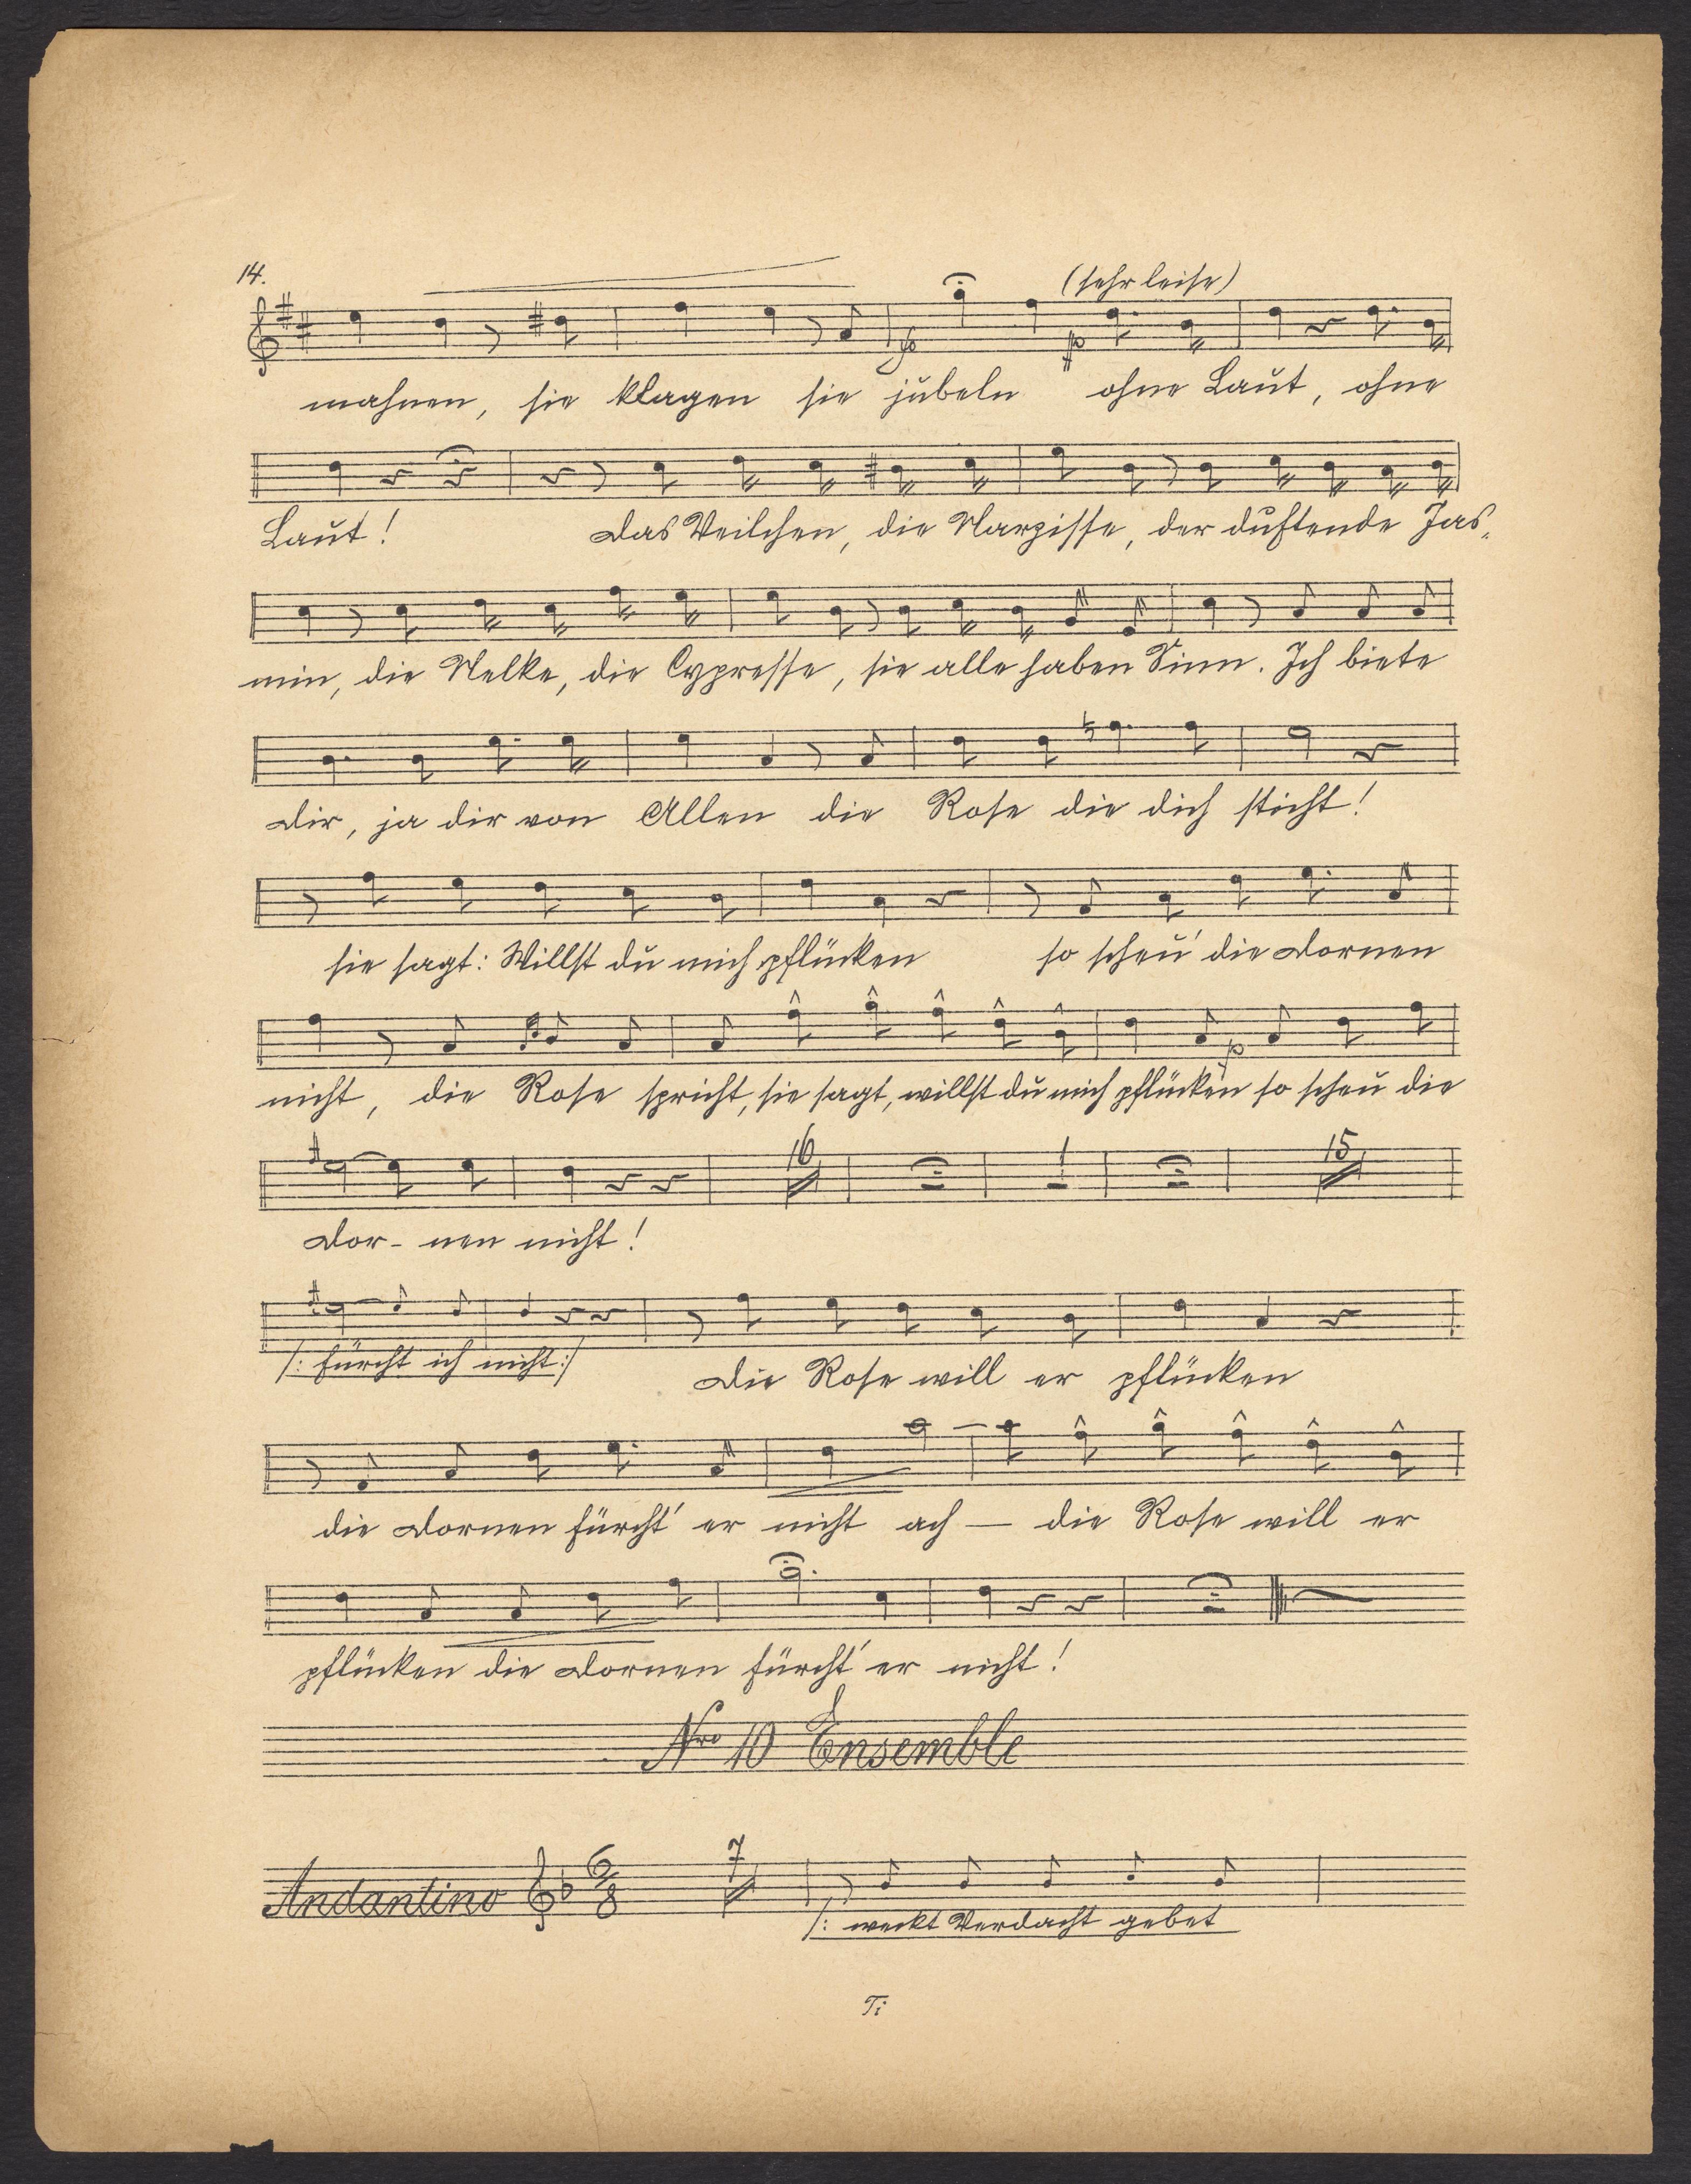 14.
(sehr leise)
mahnen, sie klagen sie jubeln ohne Laut, ohne
Laut! Das Veilchen, die Narzisse, der duftende Jas„
min, die Nelke, die Cypresse, sie alle haben Sinn. Ich biete
dir, ja dir von Allen die Rose die dich sticht!
sie sagt: Willst du mich pflücken so scheu' die Dornen
nicht, die Rose spricht, sie sagt, willst du mich pflücken so scheu die
16 1 15
Dor- nen nicht!
/: fürcht ich nicht :/ Die Rose will er pflücken
die Dornen fürcht' er nicht ach — die Rose will er
pflücken die Dornen fürcht' er nicht!
Nro 10 Ensemble
Andantino 6/8 7
/: weckt Verdacht gebet
Ti